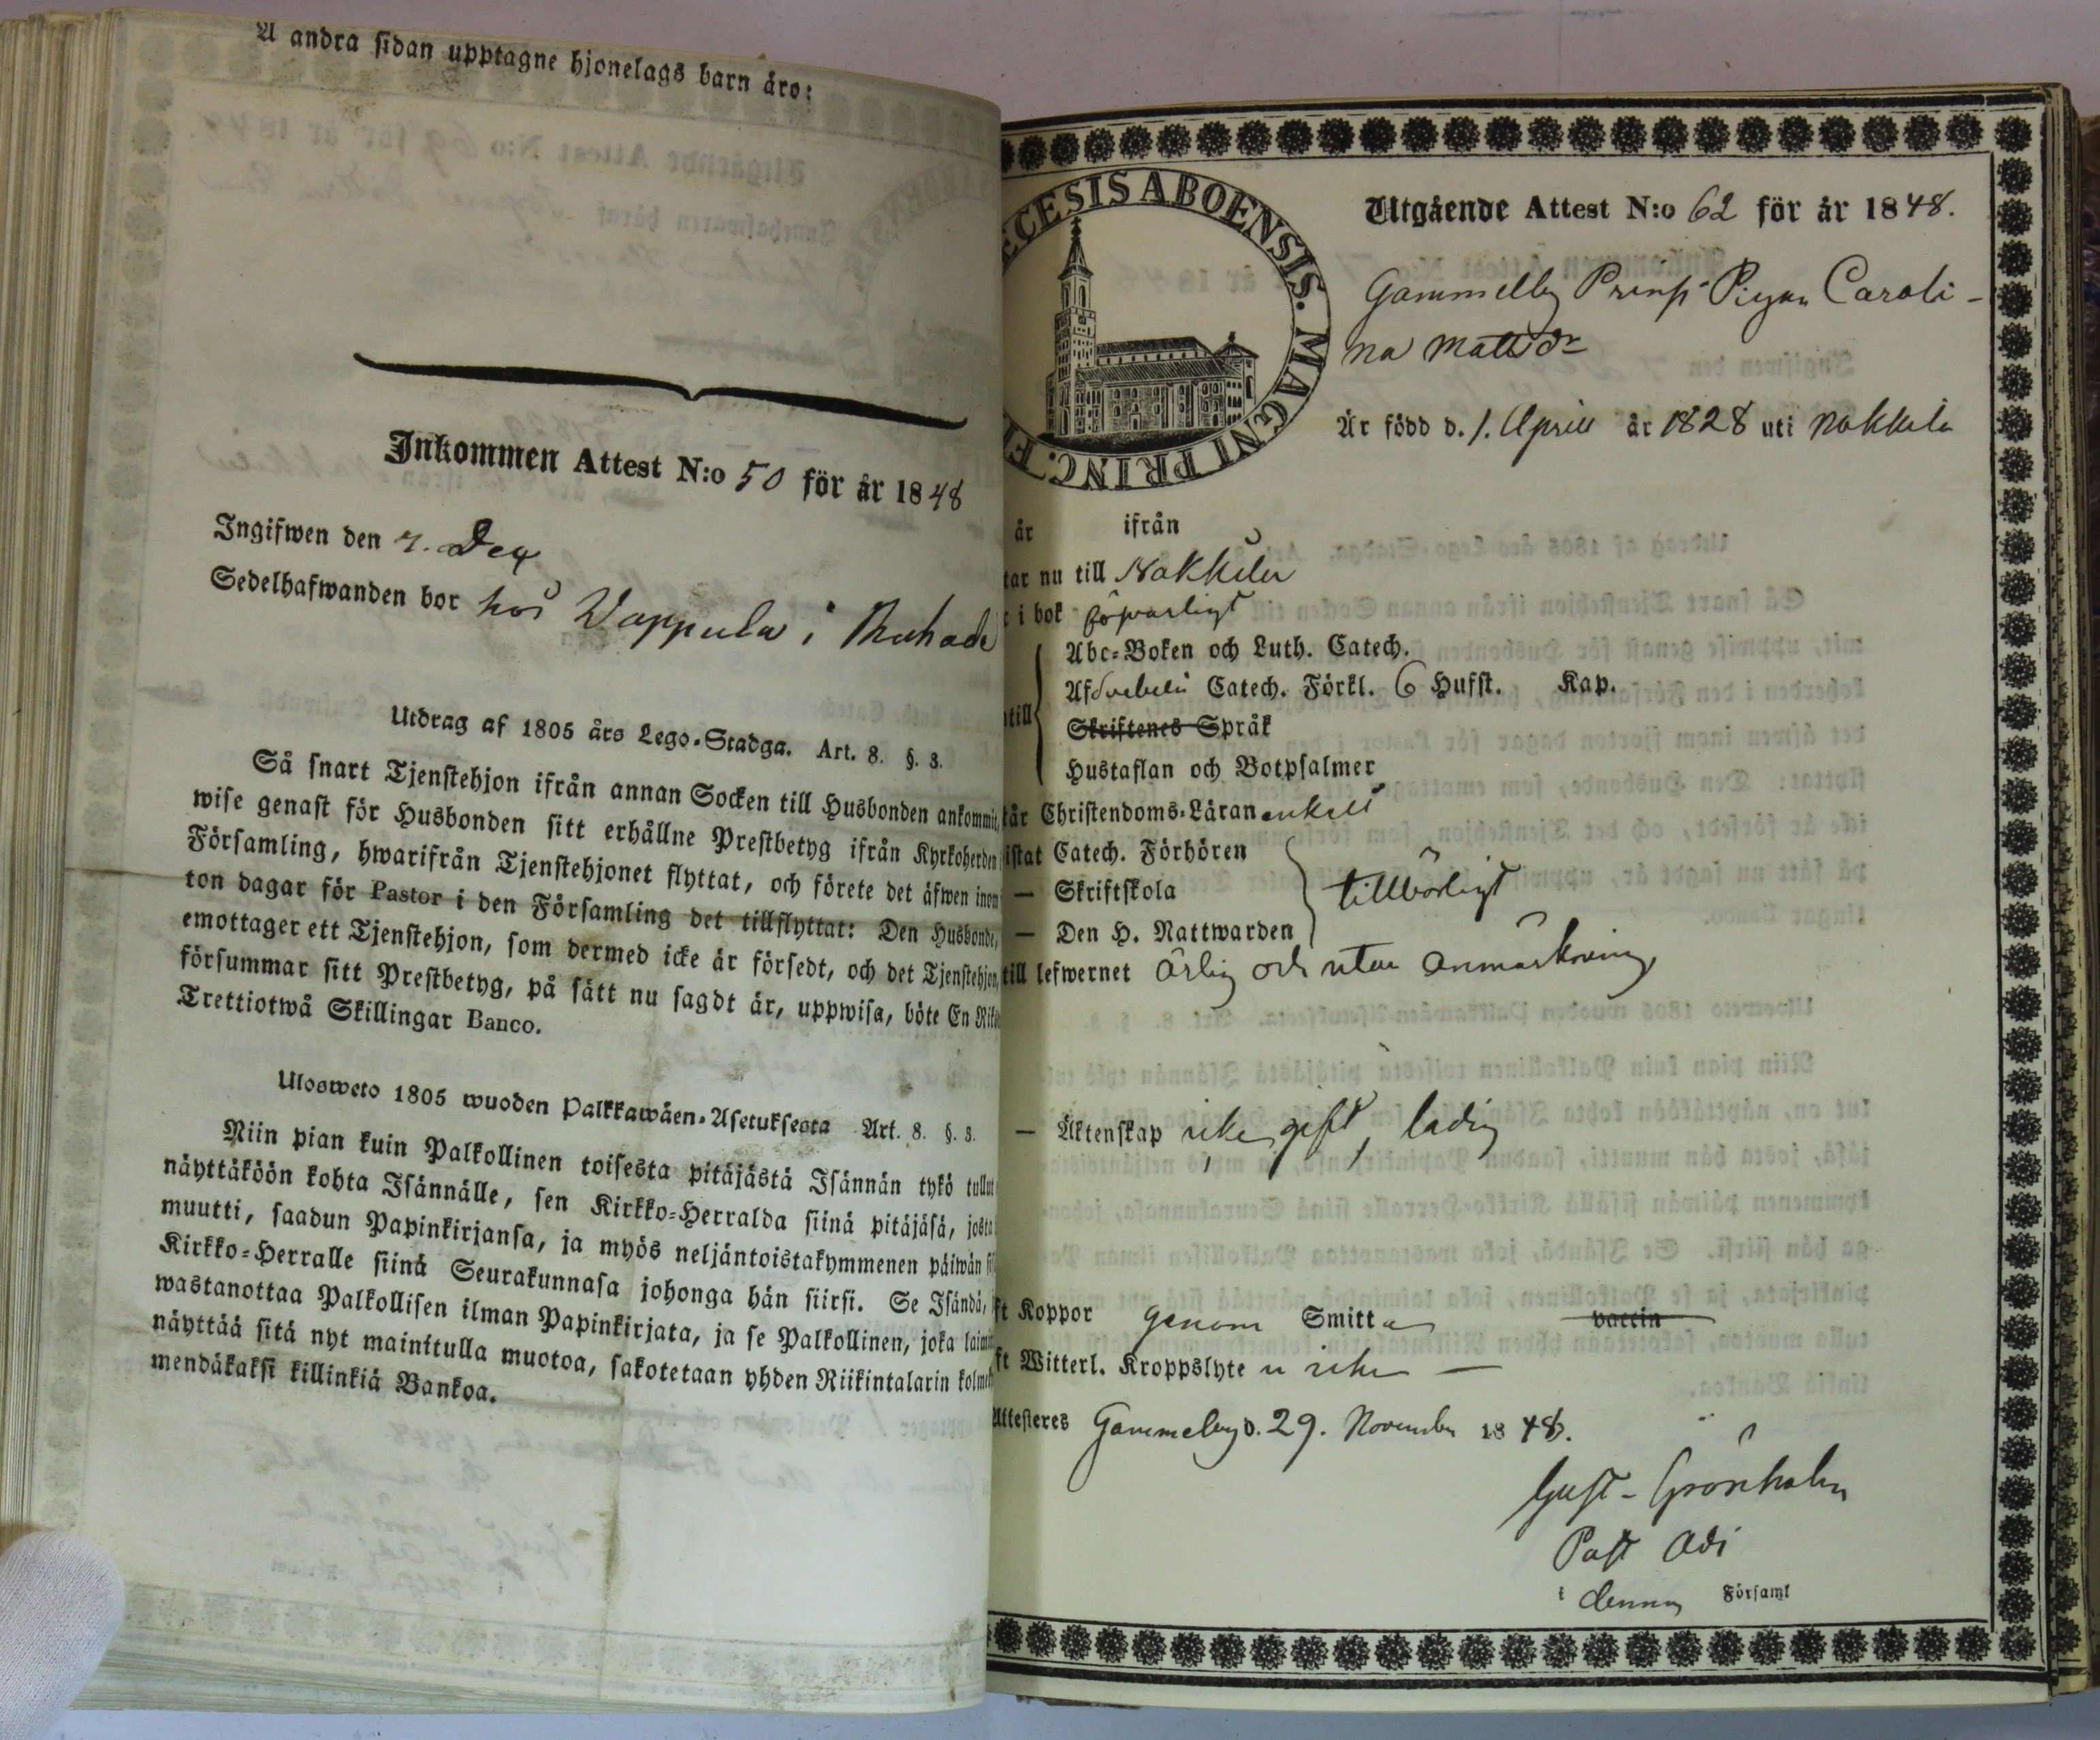 A andra sidan upptagne hjonelags barn äro:
Inkommen Attest N:o 50 för år 1848
Ingifwen den 7. Dec
Sedelhafwanden bor hos Wappula i
Utdrag af 1805 års Lego-Stadga. Art. 8. §. 3.
Så snart Tjenstehjon ifrån annan Socken till Husbonden ankommit,
wise genast för Husbonden sitt erhållne Prestbetyg ifrån Kyrkoherden
Församling, hwarifrån Tjenstehjonet flyttat, och förete det äfwen inom
ton dagar för Pastor i den Församling det tillflyttat: Den Husbonde,
emottager ett Tjenstehjon, som dermed icke är försedt, och det Tjenstehjon,
försummar sitt Prestbetyg, på sätt nu sagdt är, uppwisa, böte En Riks
Trettiotwå Skillingar Banco.
Ulosweto 1805 wuoden Palkkawäen-Asetuksesta Art. 8. §. 3.
Niin pian kuin Palkollinen toisesta pitäjästä Isännän tykö tullut
näyttäköön kohta Isännälle, sen Kirkko-Herralda siinä pitäjäsä, josta
muutti, saadun Papinkirjansa, ja myös neljäntoistakymmenen päiwän si
Kirkko-Herralle siinä Seurakunnasa johonga hän siirsi. Se Isändä,
wastanottaa Palkollisen ilman Papinkirjata, ja se Palkollinen, joka laimi
näyttää sitä nyt mainitulla muotoa, sakotetaan yhden Riikintalarin kolme
mendäkaksi killinkiä Bankoa.
ECESIS ABOENSIS. MAGNI PRINC. F
Utgående Attest N:o 62 för år 1848.
Gammelby Pigan Caroli-
na Mattsdr
Är född d. 1. April år 1828 uti Nakkila
år ifrån
tar nu till Nakkila
i bok försvarligt
Abc-Boken och Luth. Catech.
Af Svebelii Catech. Förkl. 6 Hufst. Kap.
till
Skriftenes Språk
Hustaflan och Botpsalmer
tår Christendoms-Läran enkelt
istat Catech. Förhören
— Skriftskola tillbörligt
— Den H. Nattwarden
till lefwernet ärlig och utan anmärkning
— Äktenskap icke gift, ledig
ft Koppor genom Smitta vaccin
ft Witterl. Kroppslyte icke —
Attesteres Gammelby d. 29. November 1848.
Gust. Grönholm
Past Adj
i denna Församl